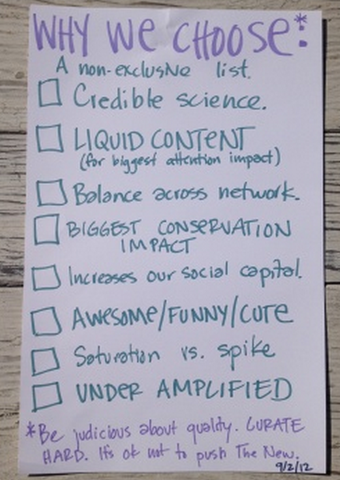 WHY WE CHOOSE*:
A non-exclusive list.
Credible science.
LIQUID CONTENT
(for biggest attention impact)
Balance across network.
BIGGEST CONSERVATION
IMPACT
Increases our social capital.
AWESOME/FUNNY/CUTE
Saturation vs. spike
UNDER AMPLIFIED
*Be judicious about quality. CURATE
HARD. It's ok not to push The New.
9/2/12